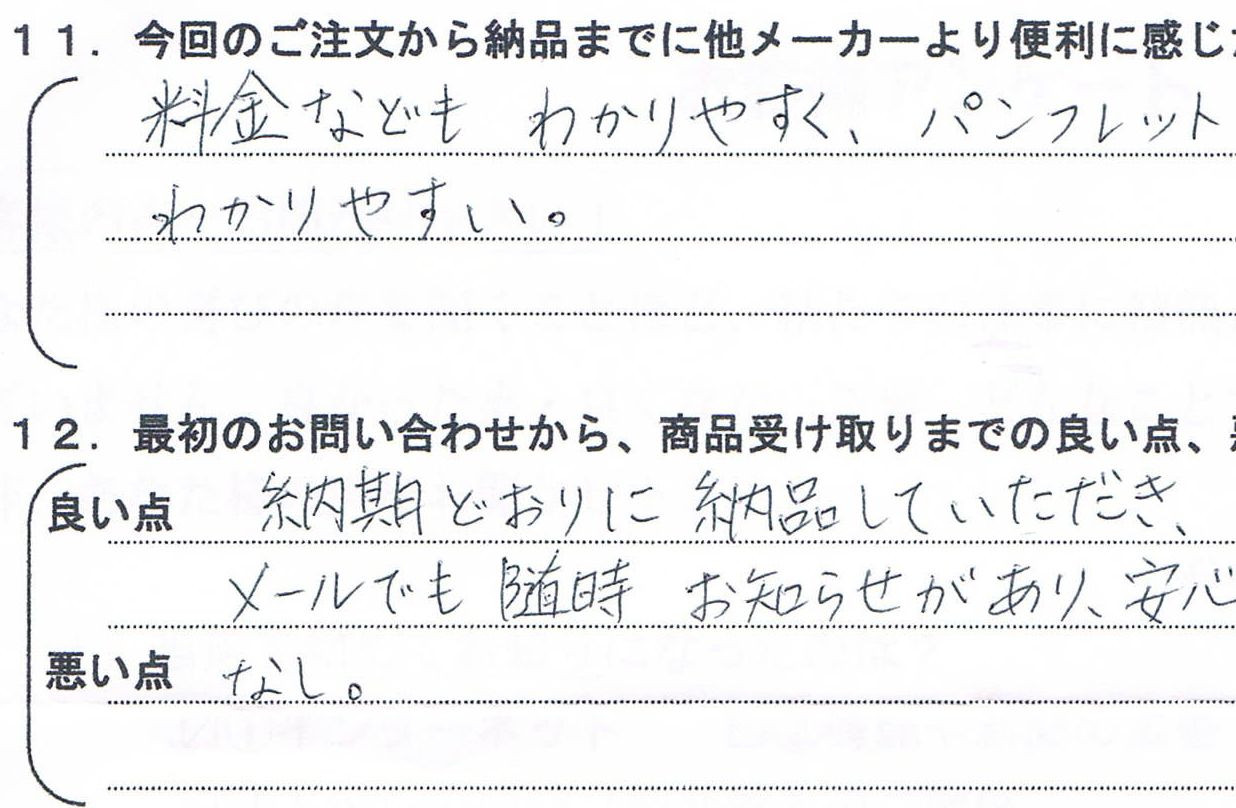 １１．今回のご注文から納品までに他メーカーより便利に感じ
料金なども わかりやすく、パンフレット
わかりやすい。
１２．最初のお問い合わせから、商品受け取りまでの良い点、
良い点 納期どおりに 納品していただき、
メールでも 随時 お知らせがあり、安心
悪い点 なし。